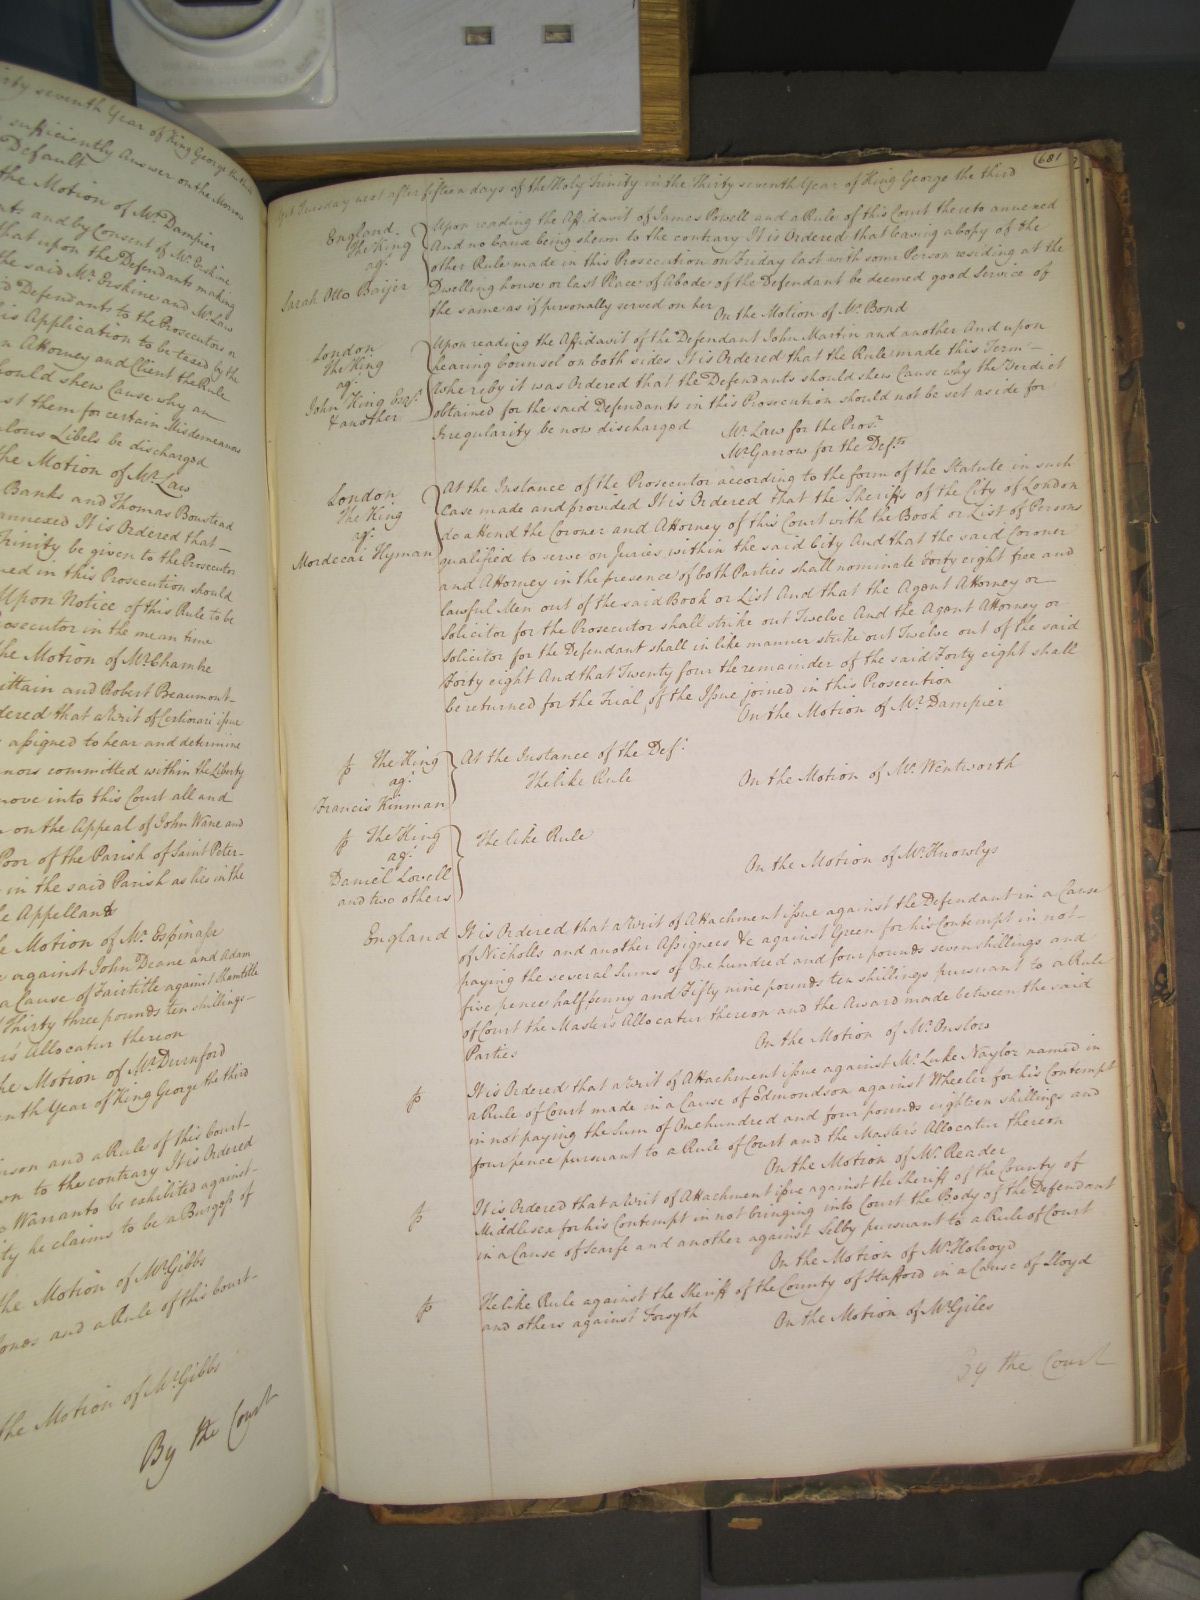 irty seventh Year of King George the third
sufficiently Answer on the Morrow
Default
the Motion of Mr. Dampier
nts and by Consent of Mr. Erskine
that upon the Defendants making
the said Mr. Erskine and Mr. Law
Defendants to the Prosecutors
is Application to be taxed by the
n Attorney and Client the Rule
hould shew Cause why an
st them for certain Misdemeanors
ulous Libels be discharged
the Motion of Mr. Law
Banks and Thomas Boustead
annexed It is Ordered that —
Trinity be given to the Prosecutor
ned in this Prosecution should
Upon Notice of this Rule to be
rosecutor in the mean time
the Motion of Mr. Chambre
ittain and Robert Beaumont
dered that a Writ of Certiorari issue
assigned to hear and determine
nors committed within the Liberty
move into this Court all and
on the Appeal of John Wane and
Poor of the Parish of Saint Peter
in the said Parish as lies in the
Appellants
e Motion of Mr. Espinasse
against John Deane and Adam
a Cause of Fairtitle against
Thirty three pounds ten shillings
r's Allocatur thereon
he Motion of Mr. Durnford
nth Year of King George the third
son and a Rule of this Court
wn to the contrary It is Ordered
Warranto be exhibited against
ty he claims to be a Burgess of
the Motion of Mr. Gibbs
Jones and a Rule of this Court
the Motion of Mr. Gibbs
By the Court
681
Tuesday next after fifteen days of the Holy Trinity in the Thirty seventh Year of King George the third
England.
The King
agt.
Sarah Otto Baijer
Upon reading the Affidavit of James Powell and a Rule of this Court thereto annexed
And no cause being shewn to the contrary It is Ordered that leaving a Copy of the
other Rule made in this Prosecution on Friday last with some Person residing at the
Dwelling house or last Place of Abode of the Defendant be deemed good Service of
the same as if personally served on her On the Motion of Mr. Bond
London
The King
agt.
John King Esqr.
& another
Upon reading the Affidavit of the Defendant John Martin and another And upon
hearing Counsel on both sides It is Ordered that the Rule made this Term —
Whereby it was Ordered that the Defendants should shew Cause why the Verdict
obtained for the said Defendants in this Prosecution should not be set aside for
Irregularity be now discharged Mr. Law for the Prosr.
Mr. Garrow for the Defts.
London
The King
agt.
Mordecai Hyman
At the Instance of the Prosecutor according to the form of the Statute in such
Case made and provided It is Ordered That the Sheriffs of the City of London
do attend the Coroner and Attorney of this Court with the Book or List of Persons
qualified to serve on Juries within the said City And that the said Coroner
and Attorney in the presence of both Parties shall nominate Forty eight free and
lawful Men out of the said Book or List And that the Agent Attorney or —
Solicitor for the Prosecutor shall strike out Twelve And the Agent Attorney or
Solicitor for the Defendant shall in like manner strike out Twelve out of the said
Forty eight And that Twenty four the remainder of the said Forty eight shall
be returned for the Trial of the Issue joined in this Prosecution
On the Motion of Mr. Dampier
The King
agt.
Francis Kinman
At the Instance of the Deft.
The like Rule On the Motion of Mr. Wentworth
The King
agt.
Daniel Lovell
and two others
The like Rule
On the Motion of Mr. Knowlys
England
It is Ordered that a Writ of Attachment issue against the Defendant in a Cause
of Nicholls and another Assignees &c against Green for his Contempt in not
paying the several Sums of One hundred and four pounds seven shillings and
five pence half penny and Fifty nine pounds ten shillings pursuant to a Rule
of Court the Master's Allocatur thereon and the Award made between the said
Parties On the Motion of Mr. Onslow
It is Ordered that a Writ of Attachment issue against Mr. Luke Naylor named in
a Rule of Court made in a Cause of Edmondson against Wheeler for his Contempt
in not paying the Sum of One hundred and four pounds eighteen shillings and
four pence pursuant to a Rule of Court and the Master's Allocatur thereon
On the Motion of Mr. Reader
It is Ordered that a Writ of Attachment issue against the Sheriff of the County of
Middlesex for his Contempt in not bringing into Court the Body of the Defendant
in a Cause of Scarfe and another against Selby pursuant to a Rule of Court
On the Motion of Mr. Holroyd
The like Rule against the Sheriff of the County of Stafford in a Cause of Lloyd
and others against Forsyth On the Motion of Mr. Giles
By the Court